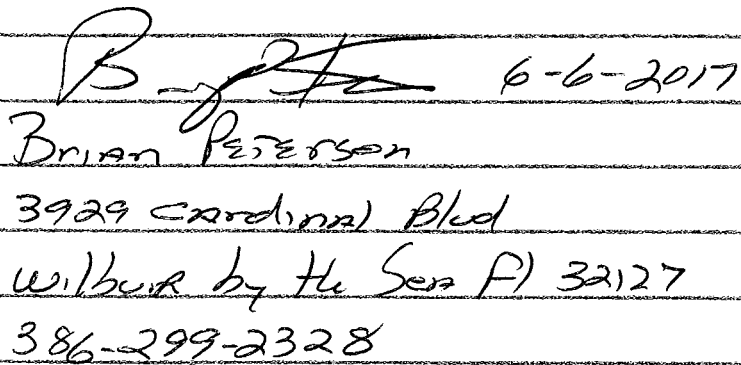 6-6-2017
Brian Peterson
3929 Cardinal Blvd
Wilbur by the Sea Fl 32127
386-299-2328